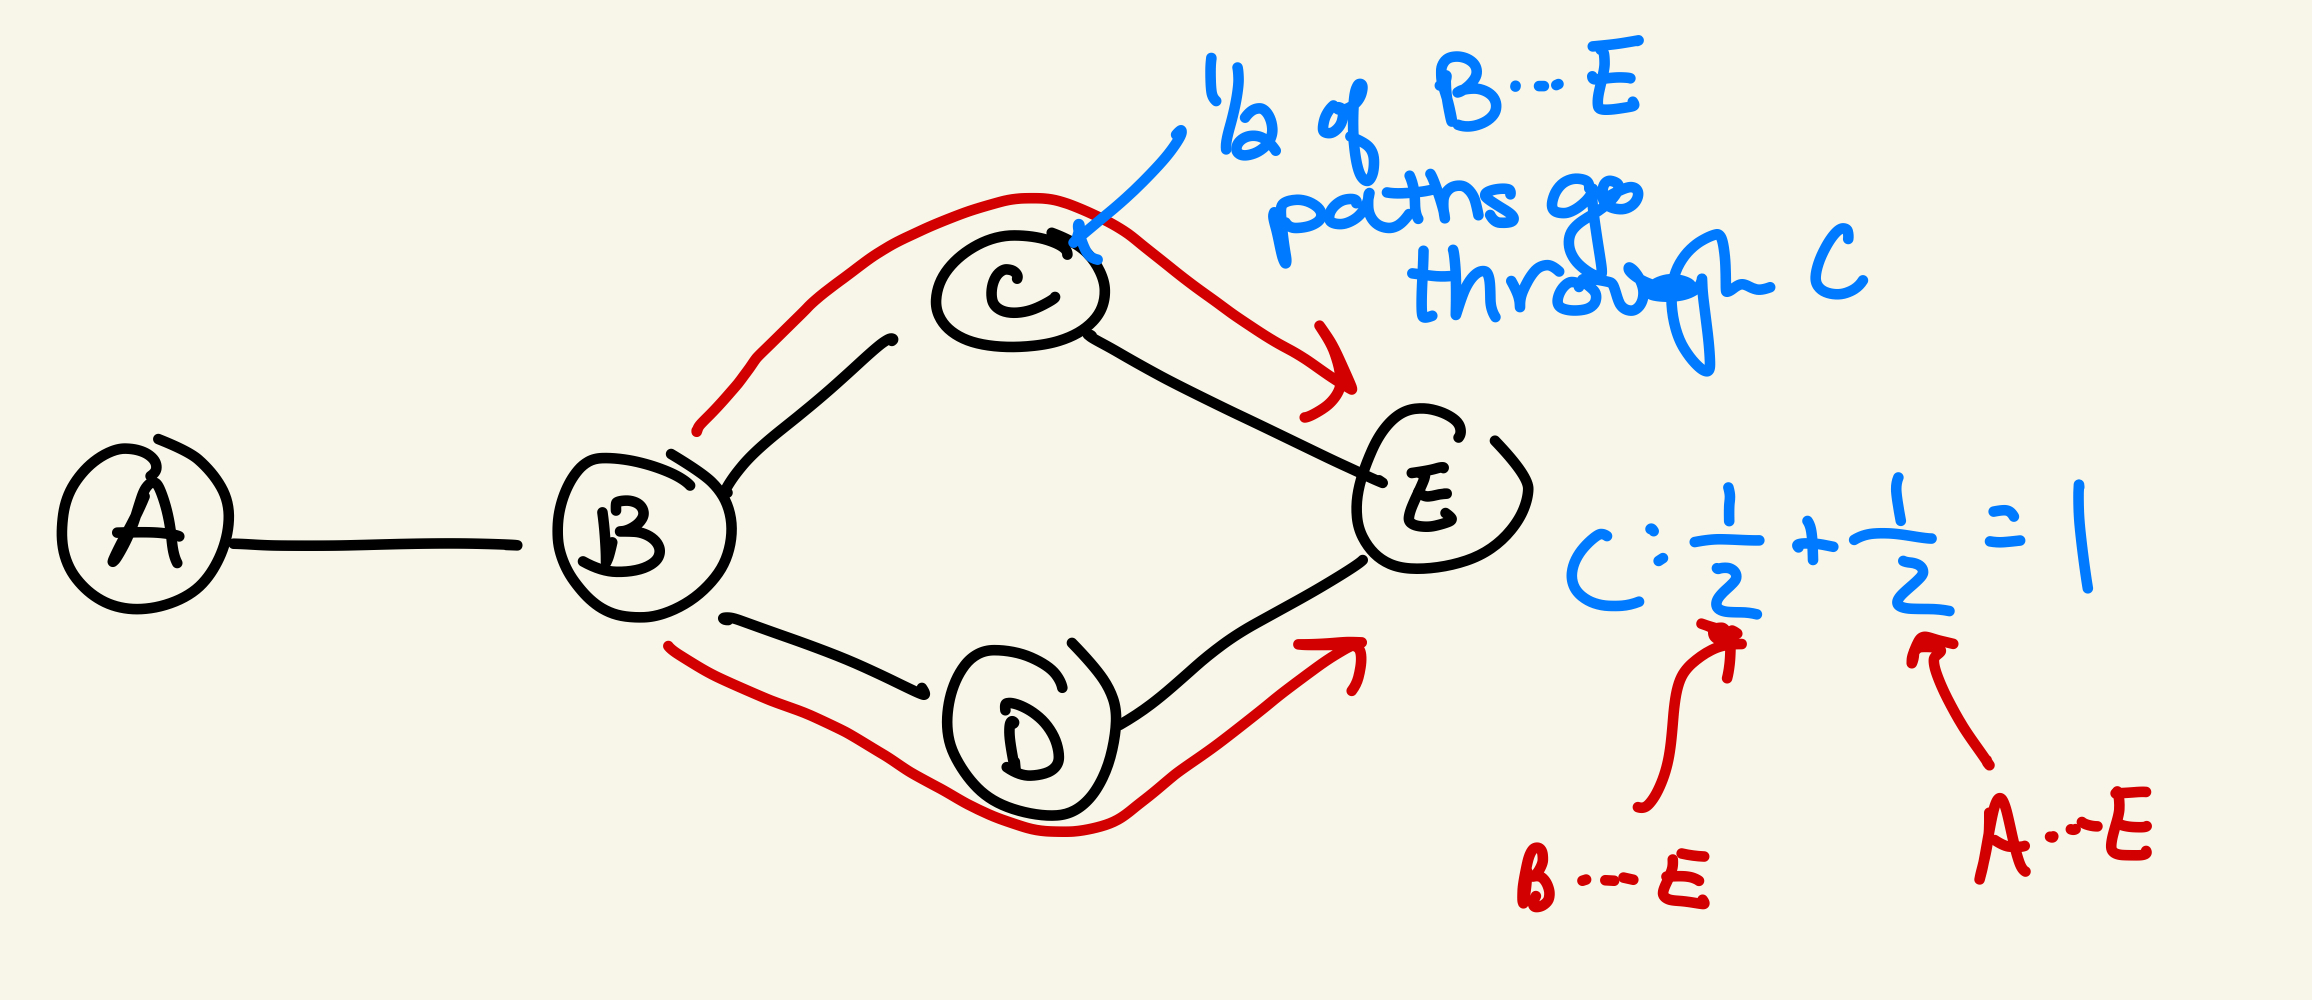 1/2 of B...E
paths go
through C
C
A
B
E
D
C: 1/2 + 1/2 = 1
B...E
A...E